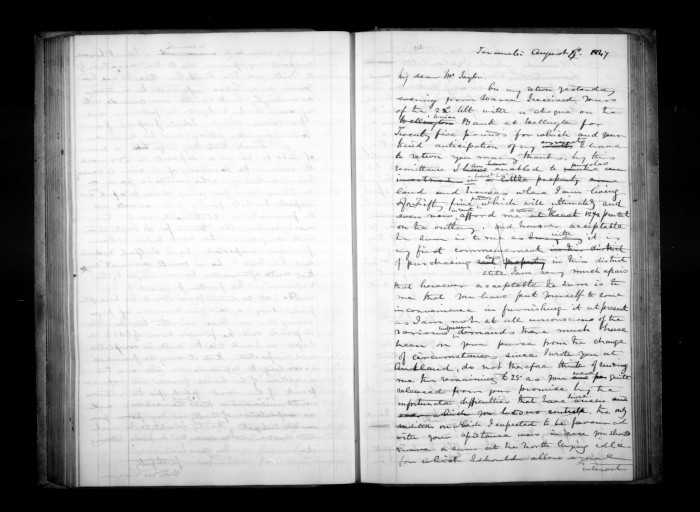 Taranaki August 1847
My dear Mr Taylor
On my return yesterday
evening from I received yours
of the 22 with a cheque on the
Wellington Union Bank at Wellington for
Twenty five pounds for which and your
kind anticipation of my I have
to return you many thanks, by this
remittance I have been enabled to
investment in a little property
land and houses where I am living
for Fifty five, which will ultimately and
even now afford me at least 12 per cent
on the outlay, and however acceptable
the sum is to me as it is
my first commencement in this district
of purchasing property in this district
still I am very much afraid
that however acceptable the sum is to
me that you have put yourself to some
inconvenience in furnishing it at present
as I am not at all unconscious of the
various demands there must have
been on your purse from the change
of circumstances since I wrote you at
Auckland, do not therefore think of sending
me the remaining £25 as you were quite
released from your promise by the
unfortunate difficulties that have arisen and
over which you had no control the only
condition on which I expected to be favoured
with your assistance was in case you should
have a sum at the North lying idle
for which I should allow
interest